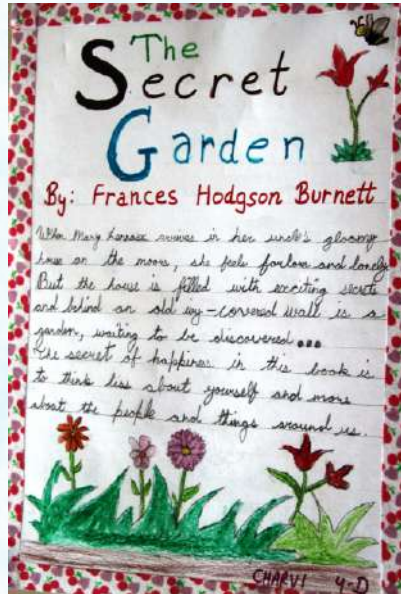 The
Secret
Garden
By: Frances Hodgson Burnett
When Mary Lennox arrives in her uncle's gloomy
house on the moors, she feels forlorn and lonely.
But the house is filled with exciting secrets
and behind an old ivy-covered wall is a
garden, waiting to be discovered...
The secret of happiness in this book is
to think less about yourself and more
about the people and things around us.
CHARVI 4-D